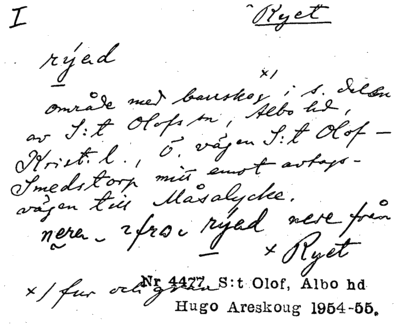 I
Ryet
rýed
område med barrskog x) i s. delen
av S:t Olofs sn, Albo hd,
Krist. l., Ö. vägen S:t Olof –
Smedstorp mitt emot avtags-
vägen till Måsalycke.
nera- ifrå i rýed nere från
x Ryet
x) fur och gran
Nr 4477 S:t Olof, Albo hd
Hugo Areskoug 1954-55.